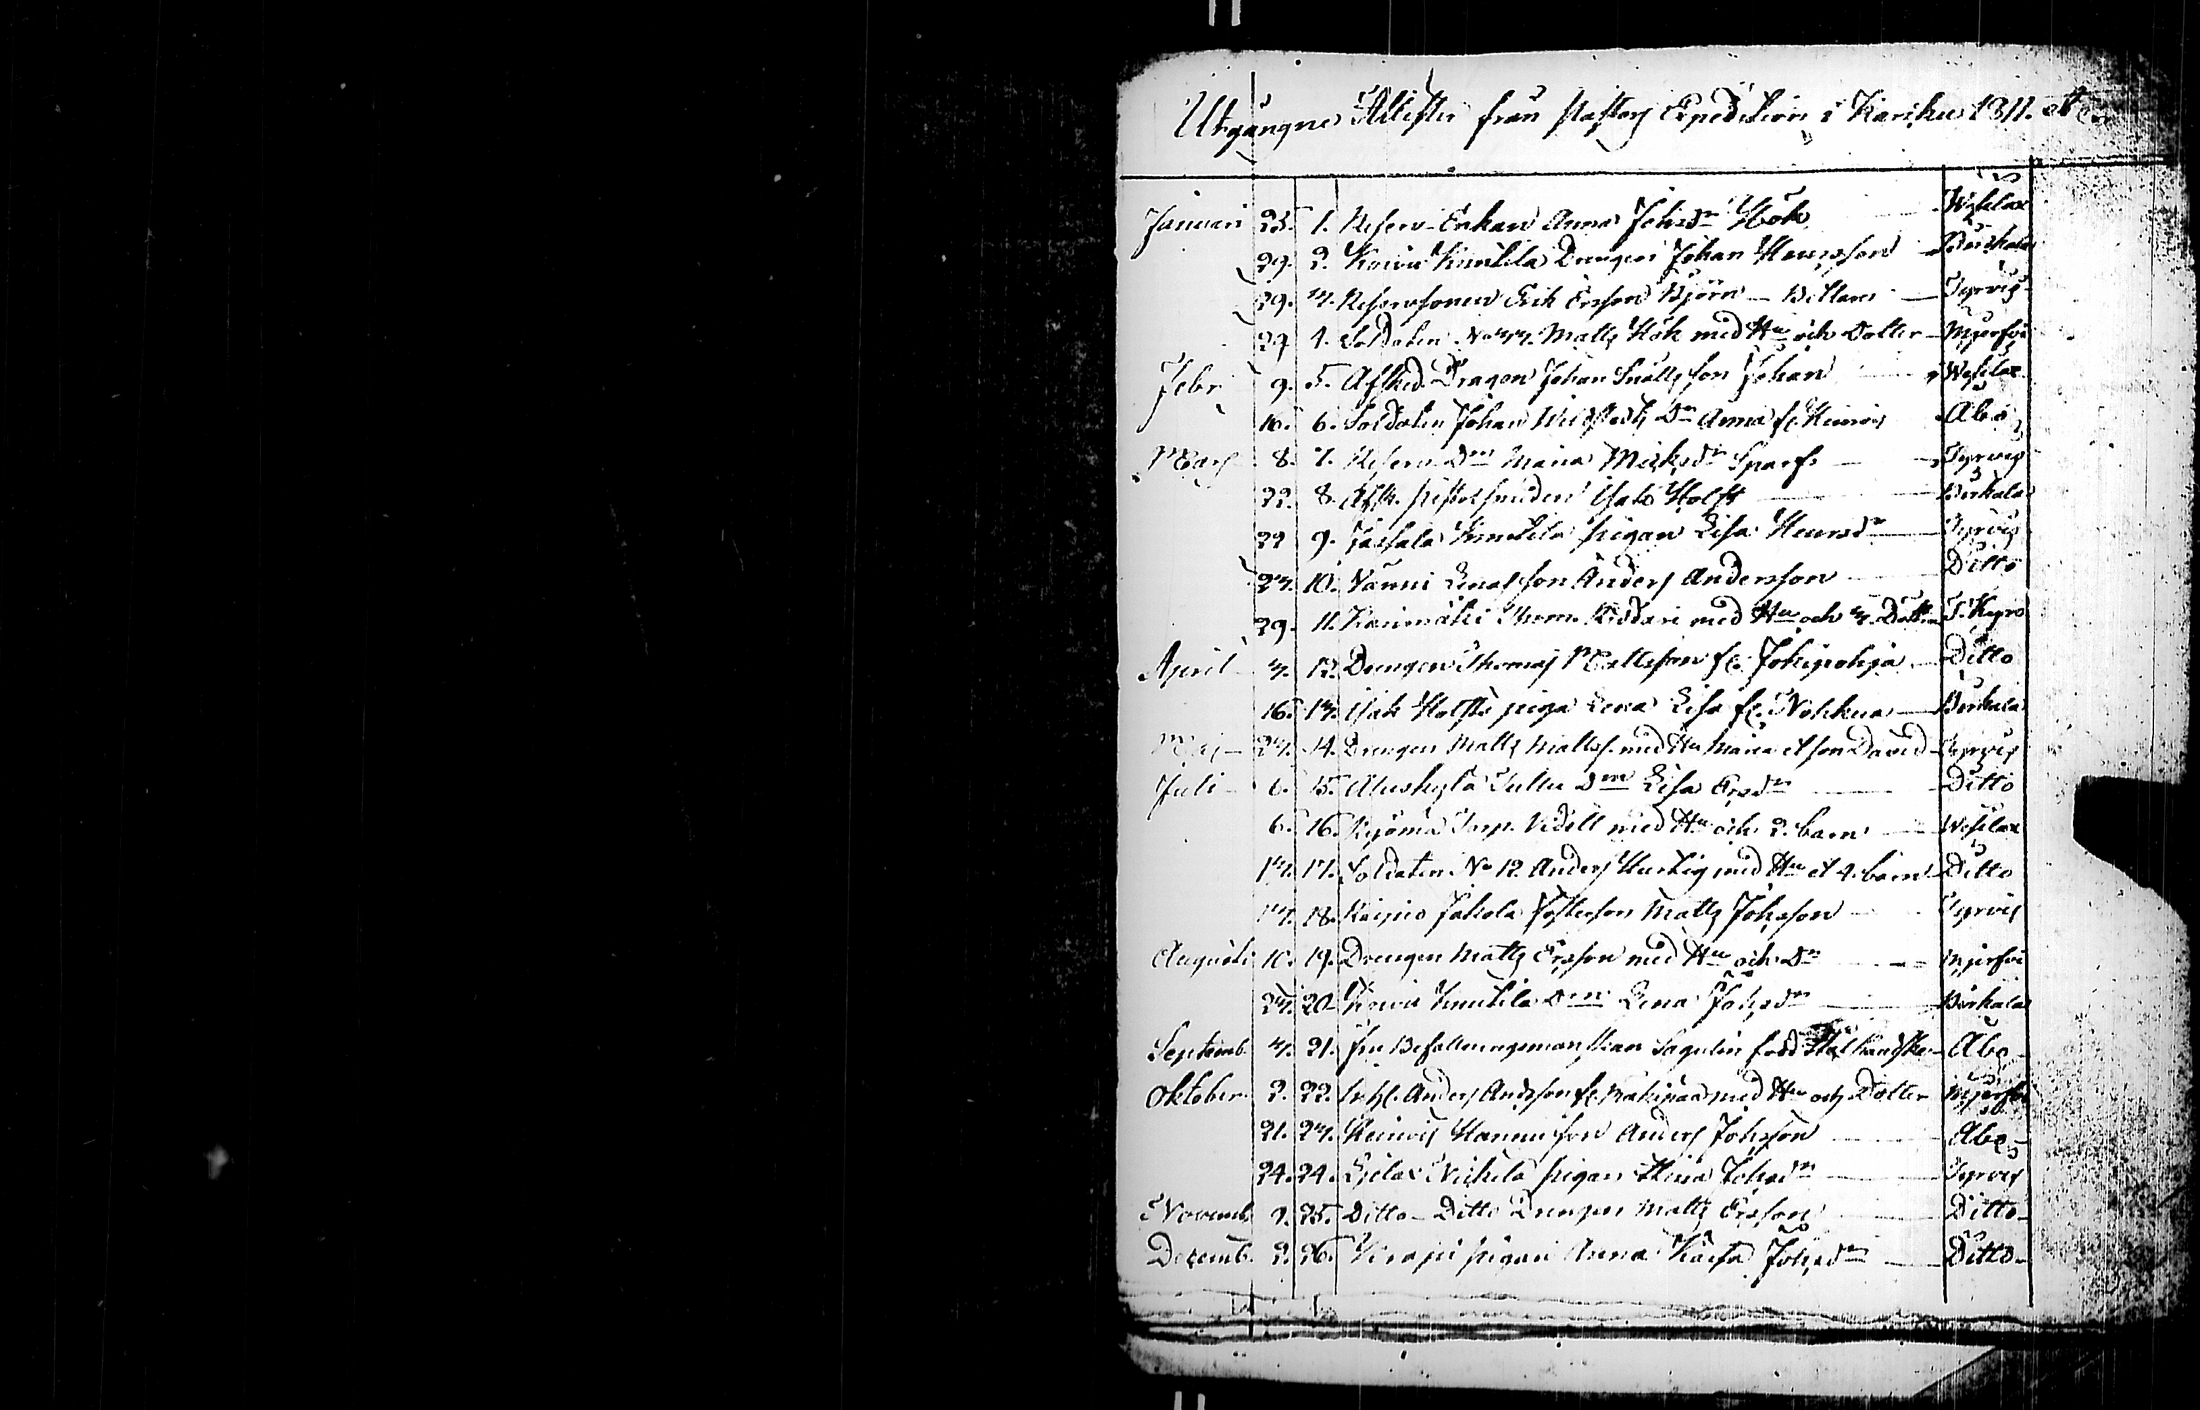 Utgångne Attester från Pastors Expedition i Karkku 1811.
Januari 25. 1. Reserv-Enkan Anna Johsdr Hök Wesilax
29. 2. Koivu Knuutila Drengen Johan Henrsson Birkala
29. 3. Reservsonen Erik Ersson Björn Tyrvis
29 4. Soldaten No 43. Matts Hök med Hu och Dotter Mjerfvi
Febr 9. 5. Afsked. Dragon Johan son Johan Wesilax
16. 6. Soldaten Johan Dr Anna fr. Heinois Åbo
Mars 8. 7. Reserv Dr Maria Michsdr Sparf Tyrvis
22. 8. Afsk. Isak Holst Birkala
29 9. Knuutila pigan Lisa Henrsdr Tyrvis
23. 10. Nanni son Anders Andersson Ditto
29. 11. med Hu och 3. Döttrar T. Kyro
April 3. 12. Drengen Thomas Mattsson fr. Jokipohja Ditto
16. 13. Isak Holsts piga Lena Lisa fr. Nohkua Birkala
Maj 23. 14. Drengen Matts Matts. med Hu Maria et son David Tyrvis
Juli 6. 15. Aluskylä Tullu Dr Lisa Ersdr Ditto
6. 16. Torp. med Hu och 2. barn Wesilax
13. 17. Soldaten No 12 Anders Hurtig med Hu et 4. barn Ditto
13. 18. Jakola Fosterson Matts Johsson Tyrvis
Augusti 10. 19. Drengen Matts Ersson med Hu och Dr Mjerfvi
23. 20. Koivu Knuutila Dr Lena Johsdr Birkala
Septemb. 3. 21. Fru Befallningsmanskan Sagulin född Stålhandske Åbo
Oktober 2. 22. Anders Andersson med Hu och Dotter Mjerfvi
21. 23. Heinois Hannu son Anders Johsson Åbo
24. 24. Nickilä pigan Stina Johsdr Tyrvis
Novemb. 9. 25. Ditto Ditto Drengen Matts Ersson Ditto
Decemb. 2. 26. pigan Anna Kaisa Johsdr Ditto